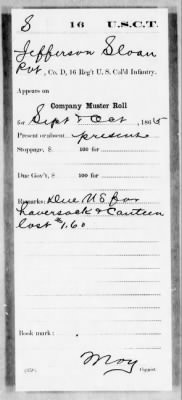 S 16 U.S.C.T.
Jefferson Sloan
Pvt, Co. D, 16 Reg't U. S. Col'd Infantry.
Appears on
Company Muster Roll
for Sept & Oct, 1865
Present or absent present
Stoppage, $ 100 for
Due Gov't, $ 100 for
Remarks: Due U.S. for
haversack & Canteen
lost $1.60
Book mark:
(358)
Moy
Copyist.